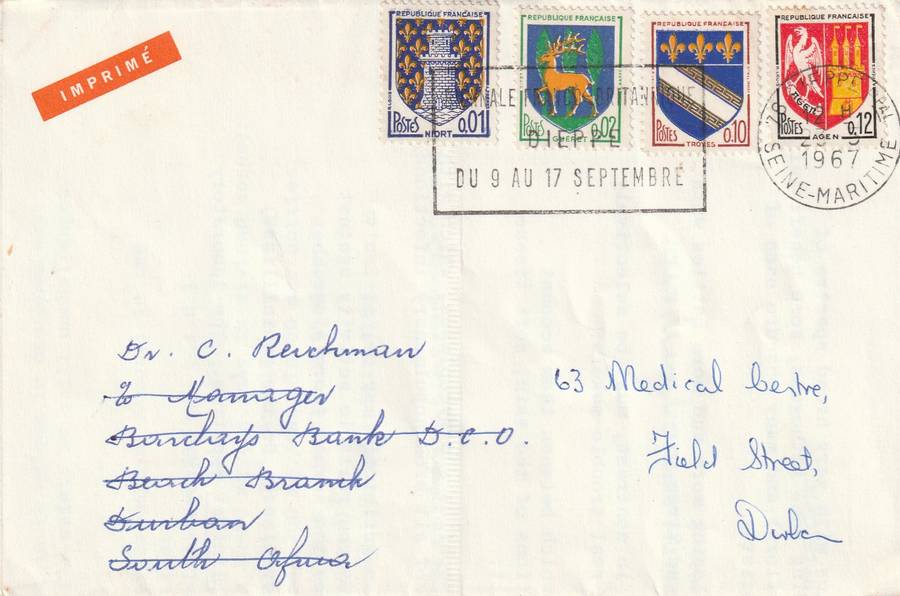 IMPRIMÉ
REPUBLIQUE FRANÇAISE
POSTES 0,01
NIORT
REPUBLIQUE FRANÇAISE
POSTES 0,02
GUERET
REPUBLIQUE FRANÇAISE
POSTES 0,10
TROYES
REPUBLIQUE FRANÇAISE
AGEN
POSTES 0,12
AGEN
FRANCO-BRITANNIQUE
DIEPPE
DU 9 AU 17 SEPTEMBRE
DIEPPE PAL
12 H
1967
SEINE-MARITIME
Dr. C. Reichman
c/o Manager
Barclays Bank D.C.O.
Beach Branch
Durban
South Africa
63 Medical Centre,
Field Street,
Durban